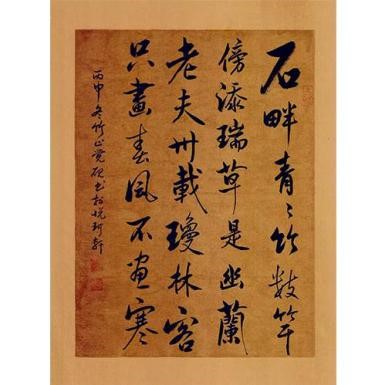 石畔青々竹數竿
傍添瑞草是幽蘭
老夫卅載瓊林客
只畫春風不畫寒
丙申冬竹